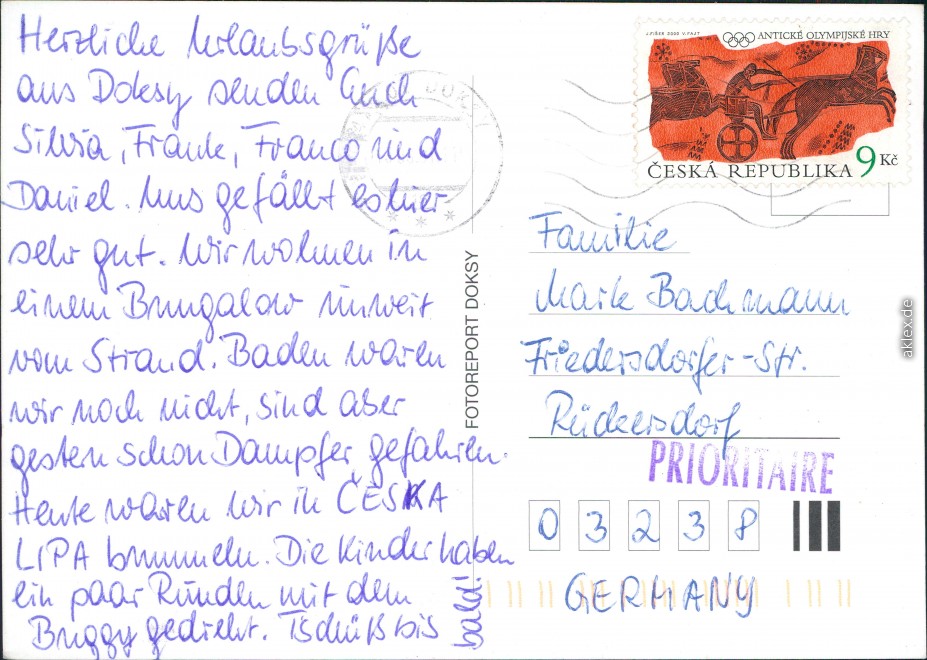 Herzliche Urlaubsgrüße
aus Doksy senden Euch
Silvia, Frank, Franco und
Daniel. Uns gefällt es hier
sehr gut. Wir wohnen in
einem Bungalow unweit
vom Strand. Baden waren
wir noch nicht, sind aber
gestern schon Dampfer gefahren.
Heute waren wir in ČESKA
LIPA bummeln. Die Kinder haben
ein paar Runden mit dem
Buggy gedreht. Tschüß bis
bald!
FOTOREPORT DOKSY
DOKSY
J.FIŠER 2000 V.FAJT
ANTICKÉ OLYMPIJSKÉ HRY
ČESKÁ REPUBLIKA 9 Kč
Familie
Maik Bachmann
Friedersdorfer-Str.
Rückersdorf
PRIORITAIRE
0 3 2 3 8
GERMANY
aklex.de